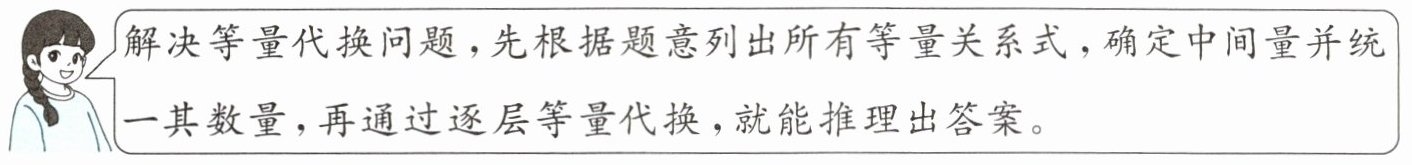 解决等量代换问题，先根据题意列出所有等量关系式，确定中间量并统
一其数量，再通过逐层等量代换，就能推理出答案。